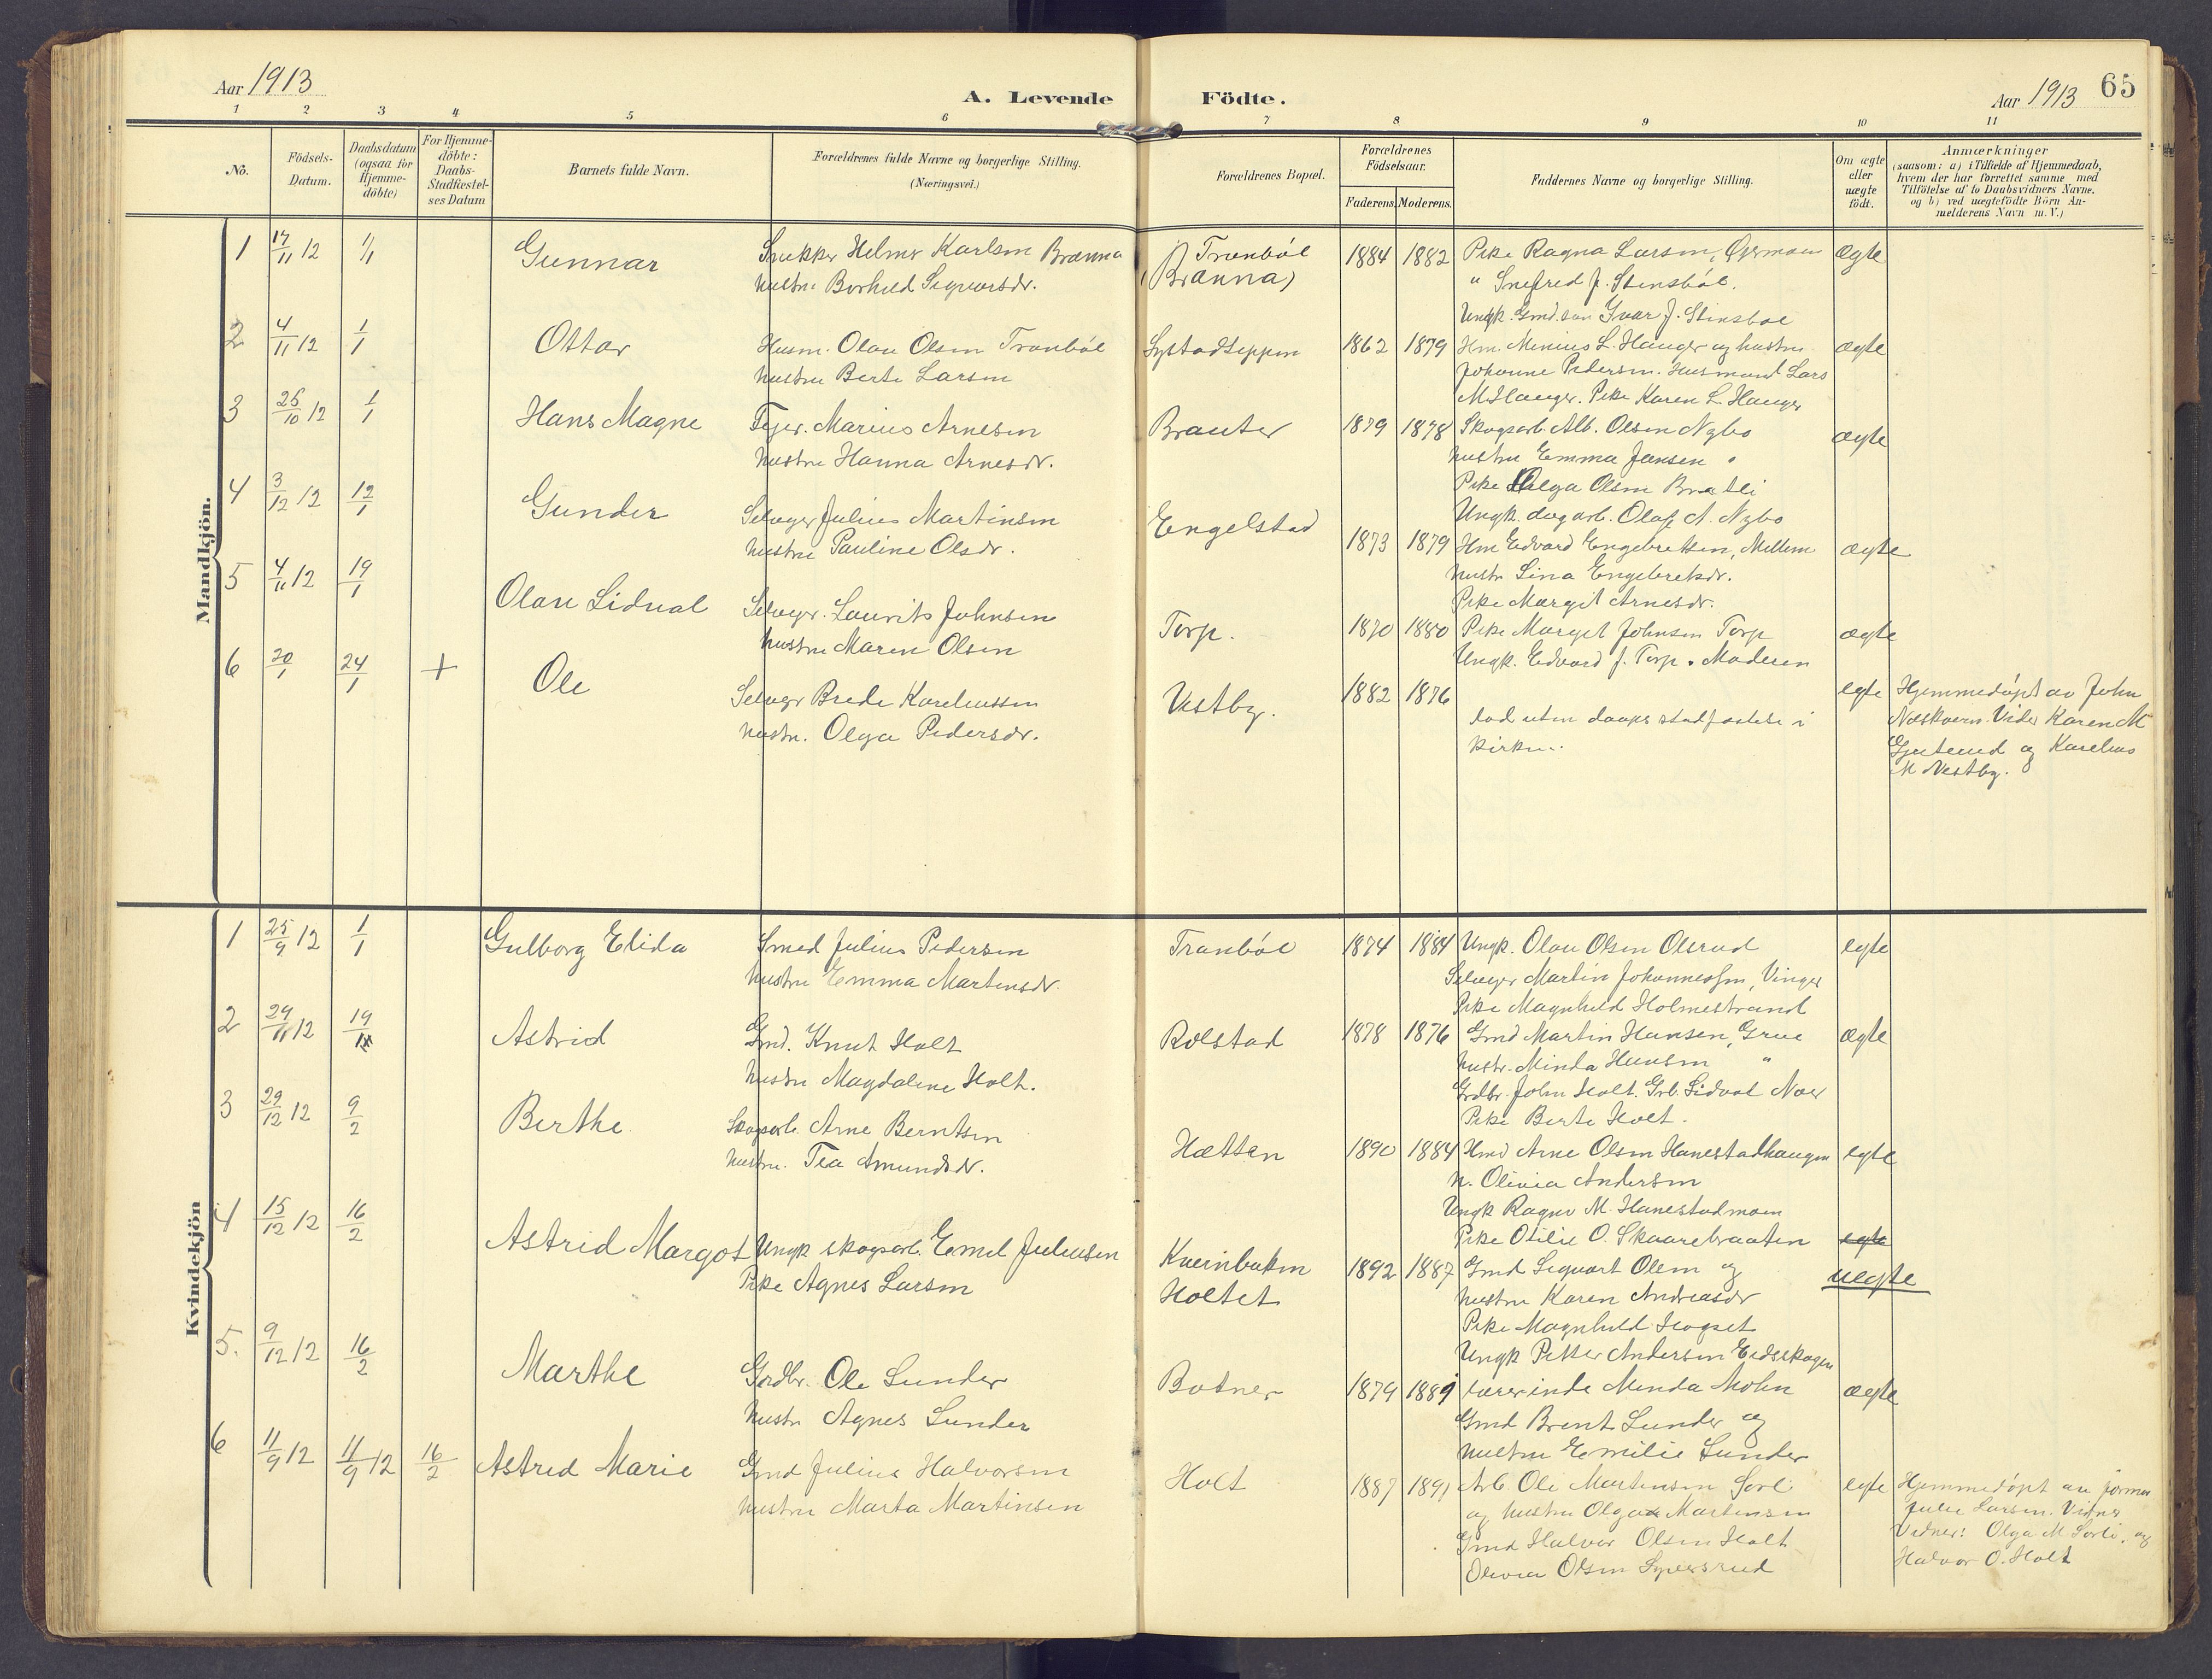 Aar 1913
A. Levende Födte.
Aar 1913
65
1 2 3 4 5 6 7 8 9 10 11
No.
Födsels-
Datum.
Daabsdatum
(ogsaa for
Hjemme-
döbte)
For Hjemme-
döbte:
Daabs-
Stadfæstel-
ses Datum
Barnets fulde Navn.
Forældrenes fulde Navne og borgerlige Stilling.
(Næringsvei.)
Forældrenes Bopæl.
Forældrenes
Födselsaar.
Faderens. Moderens.
Faddernes Navne og borgerlige Stilling.
Om ægte
eller
uægte
födt.
Anmærkninger
(saasom: a) i Tilfælde af Hjemmedaab,
hvem der har forrettet samme med
Tilföielse af to Daabsvidners Navne,
og b) ved uægtefödte Börn An-
melderens Navn m. V.)
Mandkjön.
1 17/11 12 1/1 Gunnar
Snekker Helmer Karlsen Brænna
hustru Borhild Sigvartsdr.
Tranböl
(Brænna)
1884 1882
Pike Ragna Larsen,
" Snefred J. Stensböl.
Ungk. Gmd. søn Ivar J. Stensböl
ægte
2 4/11 12 1/1 Ottar
Husm. Olau Olsen Tranböl
hustru Berte Larsen
1862 1879
Hm. Minius L. Hanger og hustru
Johanne Pedersen. Husmand Lars
M. Hanger. Pike Karen L. Hanger
ægte
3 26/10 12 1/1 Hans Magne
Marius Arnesen
hustru Hanna Arnesdr.
Brauter
1879 1878
Skogsarb. Alb. Olsen Nybo
hustru Emma Jensen "
Pike Helga Olsen Bratli
Ungk. dagarb. Olaf A. Nybo
ægte
4 3/12 12 12/1 Gunder
Selveger Julius Martinsen
hustru Pauline Olsdr.
Engelstad
1873 1879
Hm Edvard Engebretsen, Mellem
hustr. Lina Engebretsdr.
Pike Margit Arnesdr.
ægte
5 4/11 12 19/1 Olav Sidval
Selveger. Laurits Johnsen
hustru Maren Olsen
Torp.
1870 1880
Pike Margit Johnsen Torp
Ungk. Edvard J. Torp. Moderen
ægte
6 20/1 24/1 + Ole
Selveger Brede Kareliussen
hustru. Olga Pedersdr.
Vestby.
1882 1876
død uten daaps stadfæstelse i
kirken.
egte
Hjemmedöpt av John
Næskvern. Vidner Karen M
og Karelius
M Vestby.
Kvindekjön
1 25/9 12 1/1 Gulborg Elida
Smed Julius Pedersen
hustru Emma Martinsdr.
Tranböl
1874 1884
Ungk. Olau Olsen Olsrud
Selveger Martin Johannessen, Vinger
Pike Magnhild Holmestrand
egte
2 29/11 12 19/1 Astrid
Gmd. Knut Holt
hustru Magdaline Holt.
Rolstad
1878 1876
Gmd Martin Hansen, Grue
hustr. Minda Hansen "
Grdbr. John Holt. Grb. Sidval Noer
Pike Berte Holt.
ægte
3 29/12 12 9/2 Berthe
Skogsarb. Arne Berntsen
hustru. Tea Amundsdr.
Hætten
1890 1884
Hmd Arne Olsen Hanestadhaugen
h. Olivia Andersen
Ungk Ragnv M. Hanestadmoen
Pike Otilie O. Skaarebraaten
egte
4 15/12 12 16/2 Astrid Margot
Ungk skogsarb. Emil Juliusen
Pike Agnes Larsen
Kvernbakken
Holtet
1892 1887
Gmd Sigvart Olsen og
hustru Karen Andreasdr
Pike Magnhild Hogset
Ungk Petter Andersen Eidsskogen
egte
uegte
5. 9/12 12 16/2 Marthe
Gordbr. Ole Sunder
hustr Agnes Sunder
Botner
1879 1889
Lærerinde Minda Mohn
Gmd Brent Sunder og
hustru Emilie Sunder
ægte
6 11/9 12 11/9 12 16/2 Astred Marie
Gmd Julius Halvorsen
hustru Marta Martinsen
Holt
1887 1891
Arb. Ole Martinsen Sorli
og hustru Olga Martinsen
Gmd Halvor Olsen Holt
Olivia Olsen Syversrud
egte
Hjemmedöpt av jormor
Julie Larsen. Vidner
Vidner: Olga M Sorli, og
Halvor O. Holt